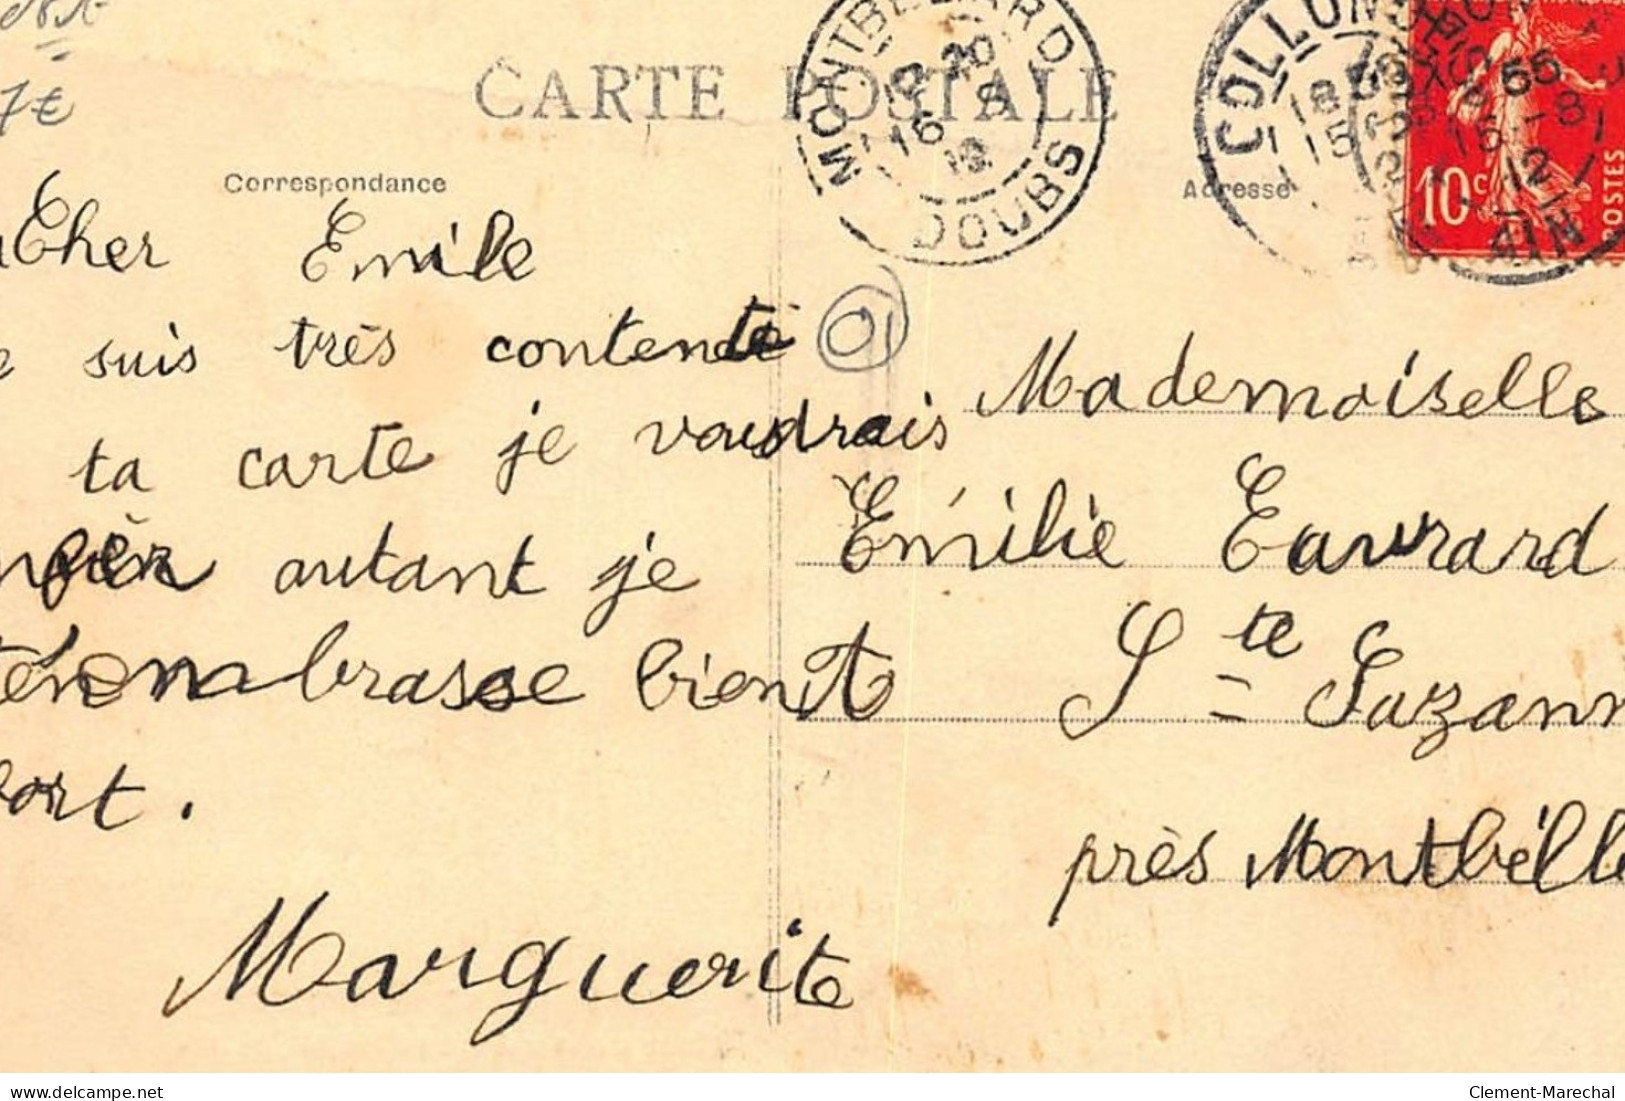 7€
CARTE POSTALE
MONTBELIARD
DOUBS
16 8
12
COLLONGES
AIN
16-8
12
10c
POSTES
Correspondance
Adresse
Cher Emile
suis très contente
01
ta carte je voudrais
autant je
brasse bien
fort.
Marguerite
Mademoiselle
Emilie Eavrard
Ste Suzann
près Montbélli
delcampe.net
Clement-Marechal